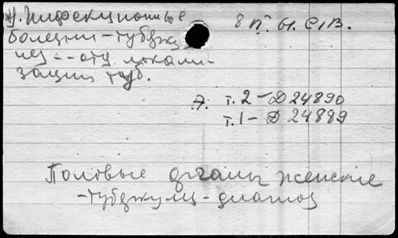 У. Инфекционные
болезни - туберку
лез -- отд. локали-
зации туб.
8 П. Н. С. В.
А. т. 2 - Д 24890
т. 1 - Д 24889
Половые органы женские
- туберкулез - диагноз